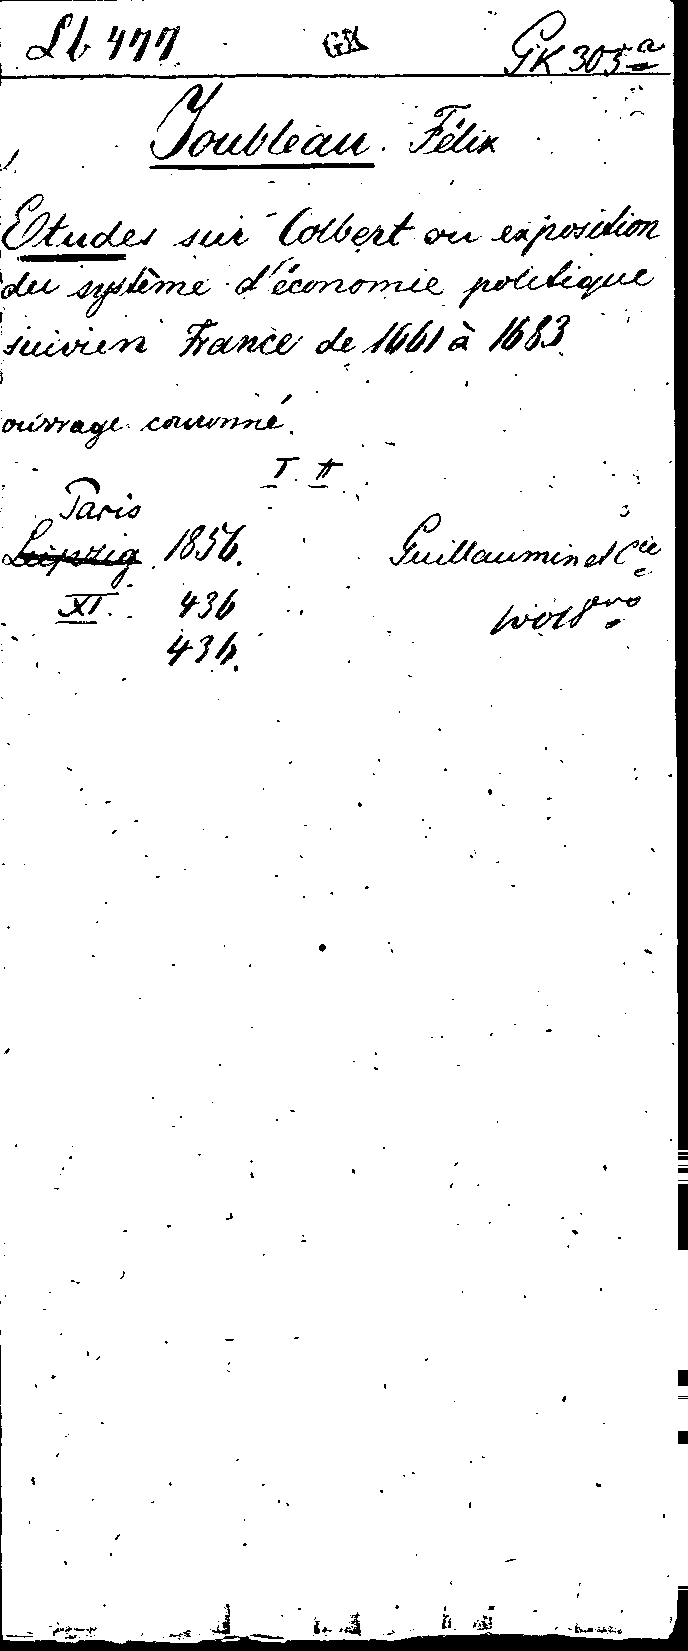 Lb 477 GK GK 305 a
Joubleau. Félix
Etudes sur Colbert ou exposition
du système d'économie politique
suivi en France de 1661 à 1683
ouvrage couronné.
I. II
Paris
Leipzig 1856. Guillaumin et Cie
XI. 436
436.